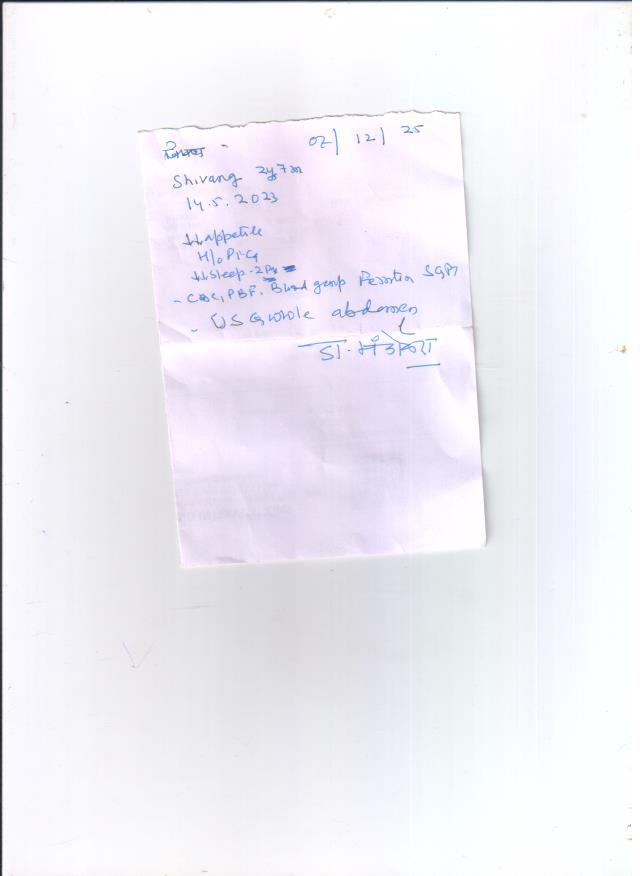 02/12/25
Shivang 2y 7m
14.5.2023
↓↓ appetite
H/o Pica
↓↓ sleep - 2
- CBC, PBF, Blood group Ferritin SGPT
- USG whole abdomen
डा.